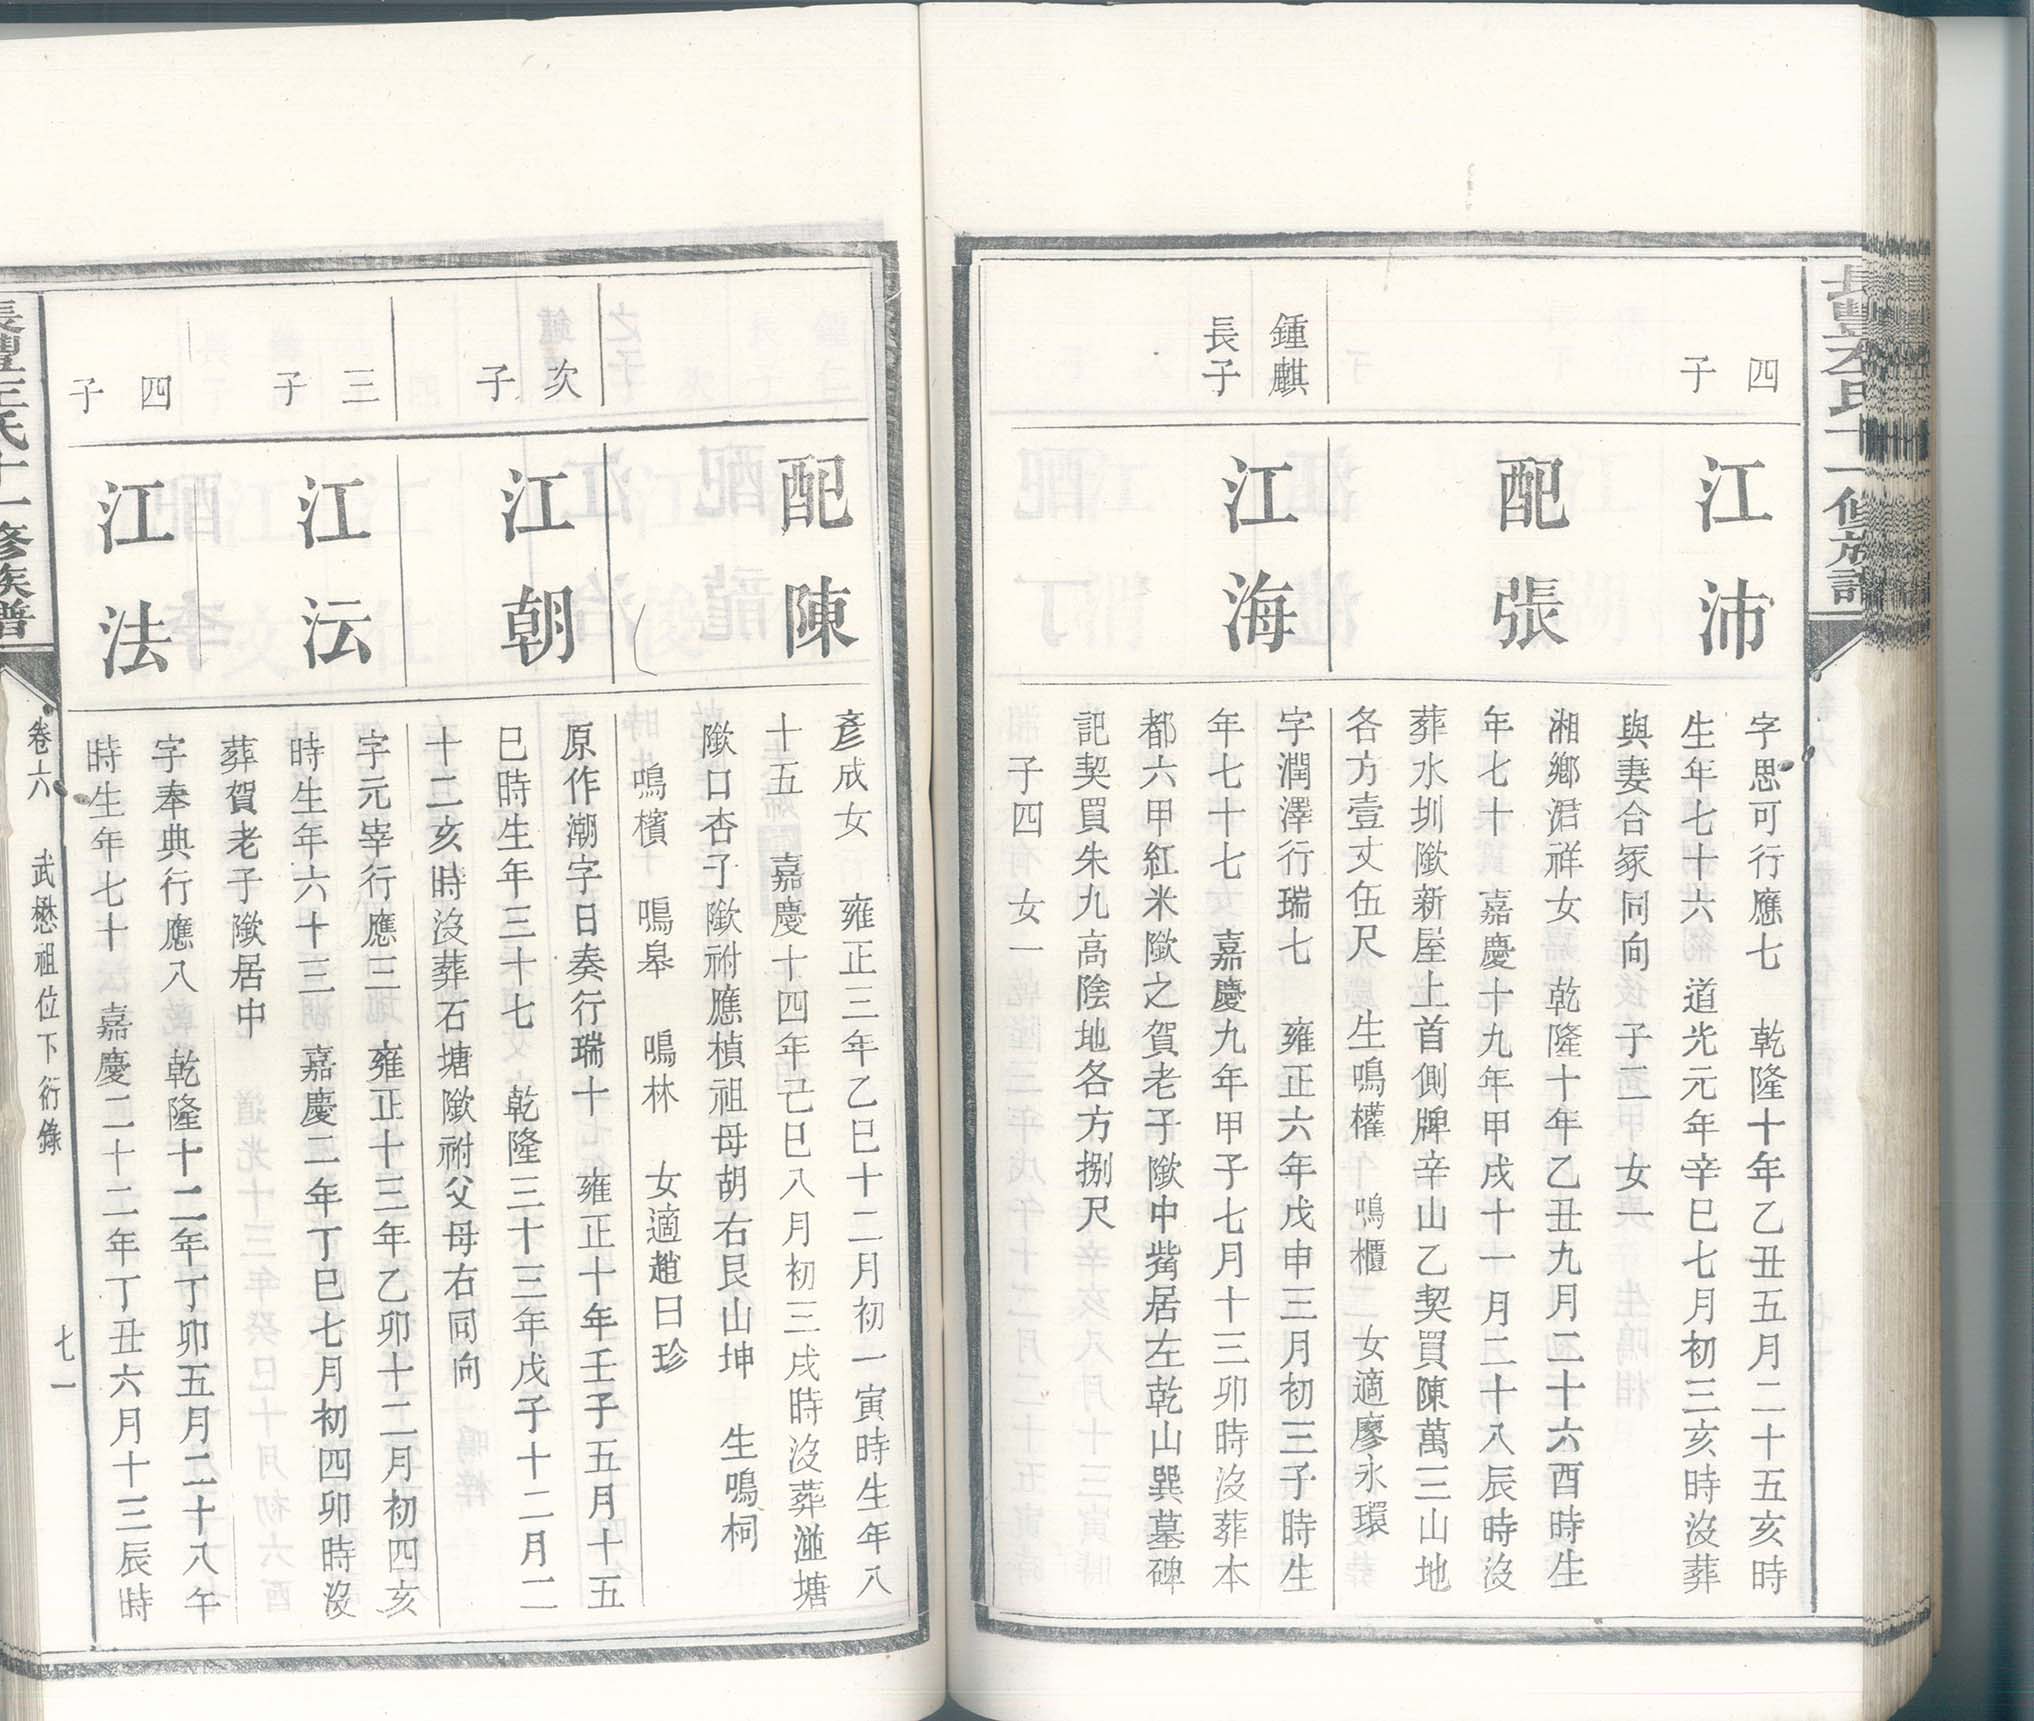 長豐左氏十一修族譜
四
子
江沛
字思可行應七 乾隆十年乙丑五月二十五亥時
生年七十六 道光元年辛巳七月初三亥時沒葬
與妻合冢同向 子二 女一
配張
湘鄉涒祥女 乾隆十年乙丑九月二十六酉時生
年七十 嘉慶十九年甲戌十一月二十八辰時沒
葬水圳歘新屋上首側牌辛山乙契買陳萬三山地
各方壹丈伍尺 生鳴權 鳴櫃 女適廖永環
鍾麒
長子
江海
字潤澤行瑞七 雍正六年戊申三月初三子時生
年七十七 嘉慶九年甲子七月十三卯時沒葬本
都六甲紅米歘之賀老子歘中嘴居左乾山巽墓碑
記契買朱九高陰地各方捌尺
子四 女一
配陳
彥成女 雍正三年乙巳十二月初一寅時生年八
十五 嘉慶十四年己巳八月初三戌時沒葬塘
歘口杏子歘祔應楨祖母胡右艮山坤 生鳴祠
鳴檳 鳴皋 鳴林 女適趙日珍
次
子
江朝
原作潮字日奏行瑞十 雍正十年壬子五月十五
巳時生年三十七 乾隆三十三年戊子十二月二
十二亥時沒葬石塘歘祔父母右同向
三
子
江沄
字元宰行應三 雍正十三年乙卯十二月初四亥
時生年六十三 嘉慶二年丁巳七月初四卯時沒
葬賀老子歘居中
四
子
江法
字奉典行應八 乾隆十二年丁卯五月二十八午
時生年七十 嘉慶二十二年丁丑六月十三辰時
長豐左氏十一修族譜
卷六 武懋祖位下衍錄 七一